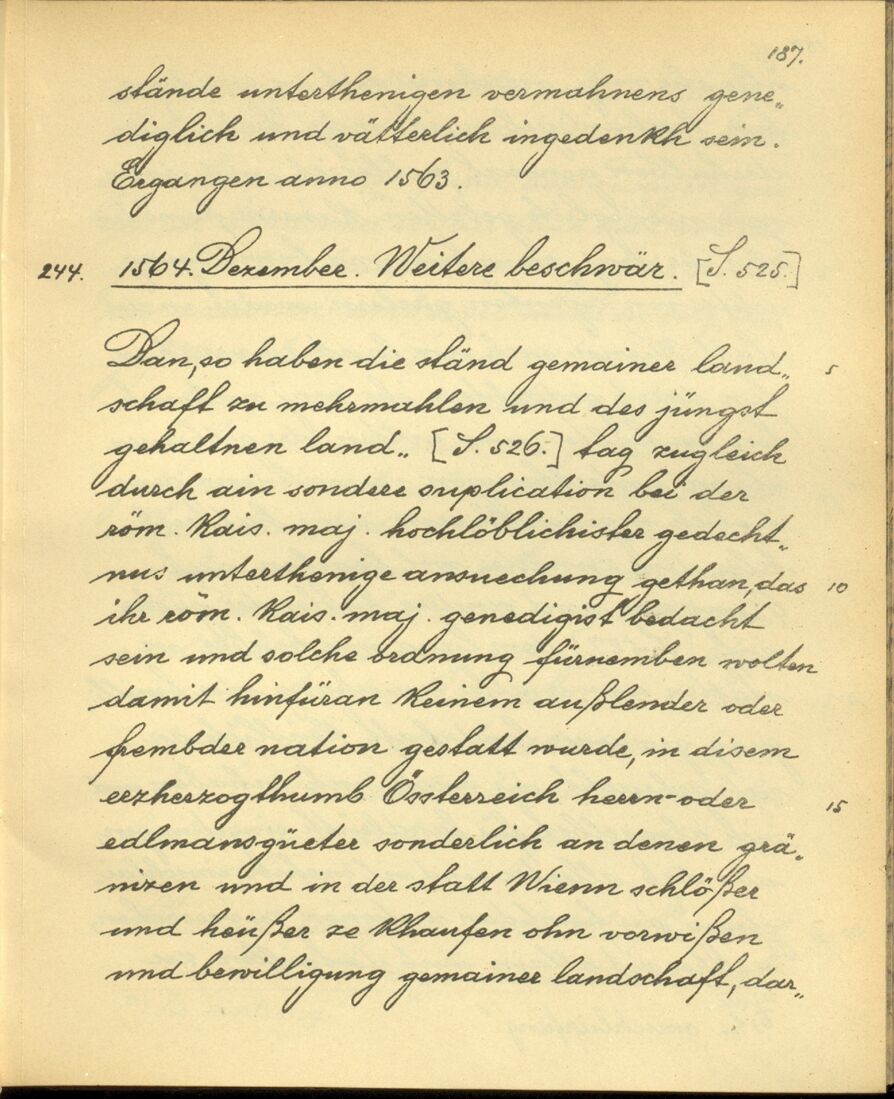 187.
stände unterthenigen vermahnens gene„
diglich und vätterlich ingedenkh sein.
Ergangen anno 1563.
244. 1564. Dezember. Weitere beschwär. [S. 525.]
Dan, so haben die ständ gemainer land„ 5
schaft zu mehrmahlen und des jüngst
gehaltnen land„ [S. 526.] tag zugleich
durch ain sondere suplication bei der
röm. kais. maj. hochlöblichister gedecht„
nus unterthenige ansuechung gethan, das 10
ihr röm. kais. maj. genedigist bedacht
sein und solche ordnung fürnemben wolten
damit hinfüran keinem außlender oder
frembder nation gestatt wurde, in disem
erzherzogthumb Össterreich herrn- oder 15
edlmansgüeter sonderlich an denen grä„
nizen und in der statt Wienn schlößer
und heüßer ze khaufen ohn vorwißen
und bewilligung gemainer landschaft, dar„